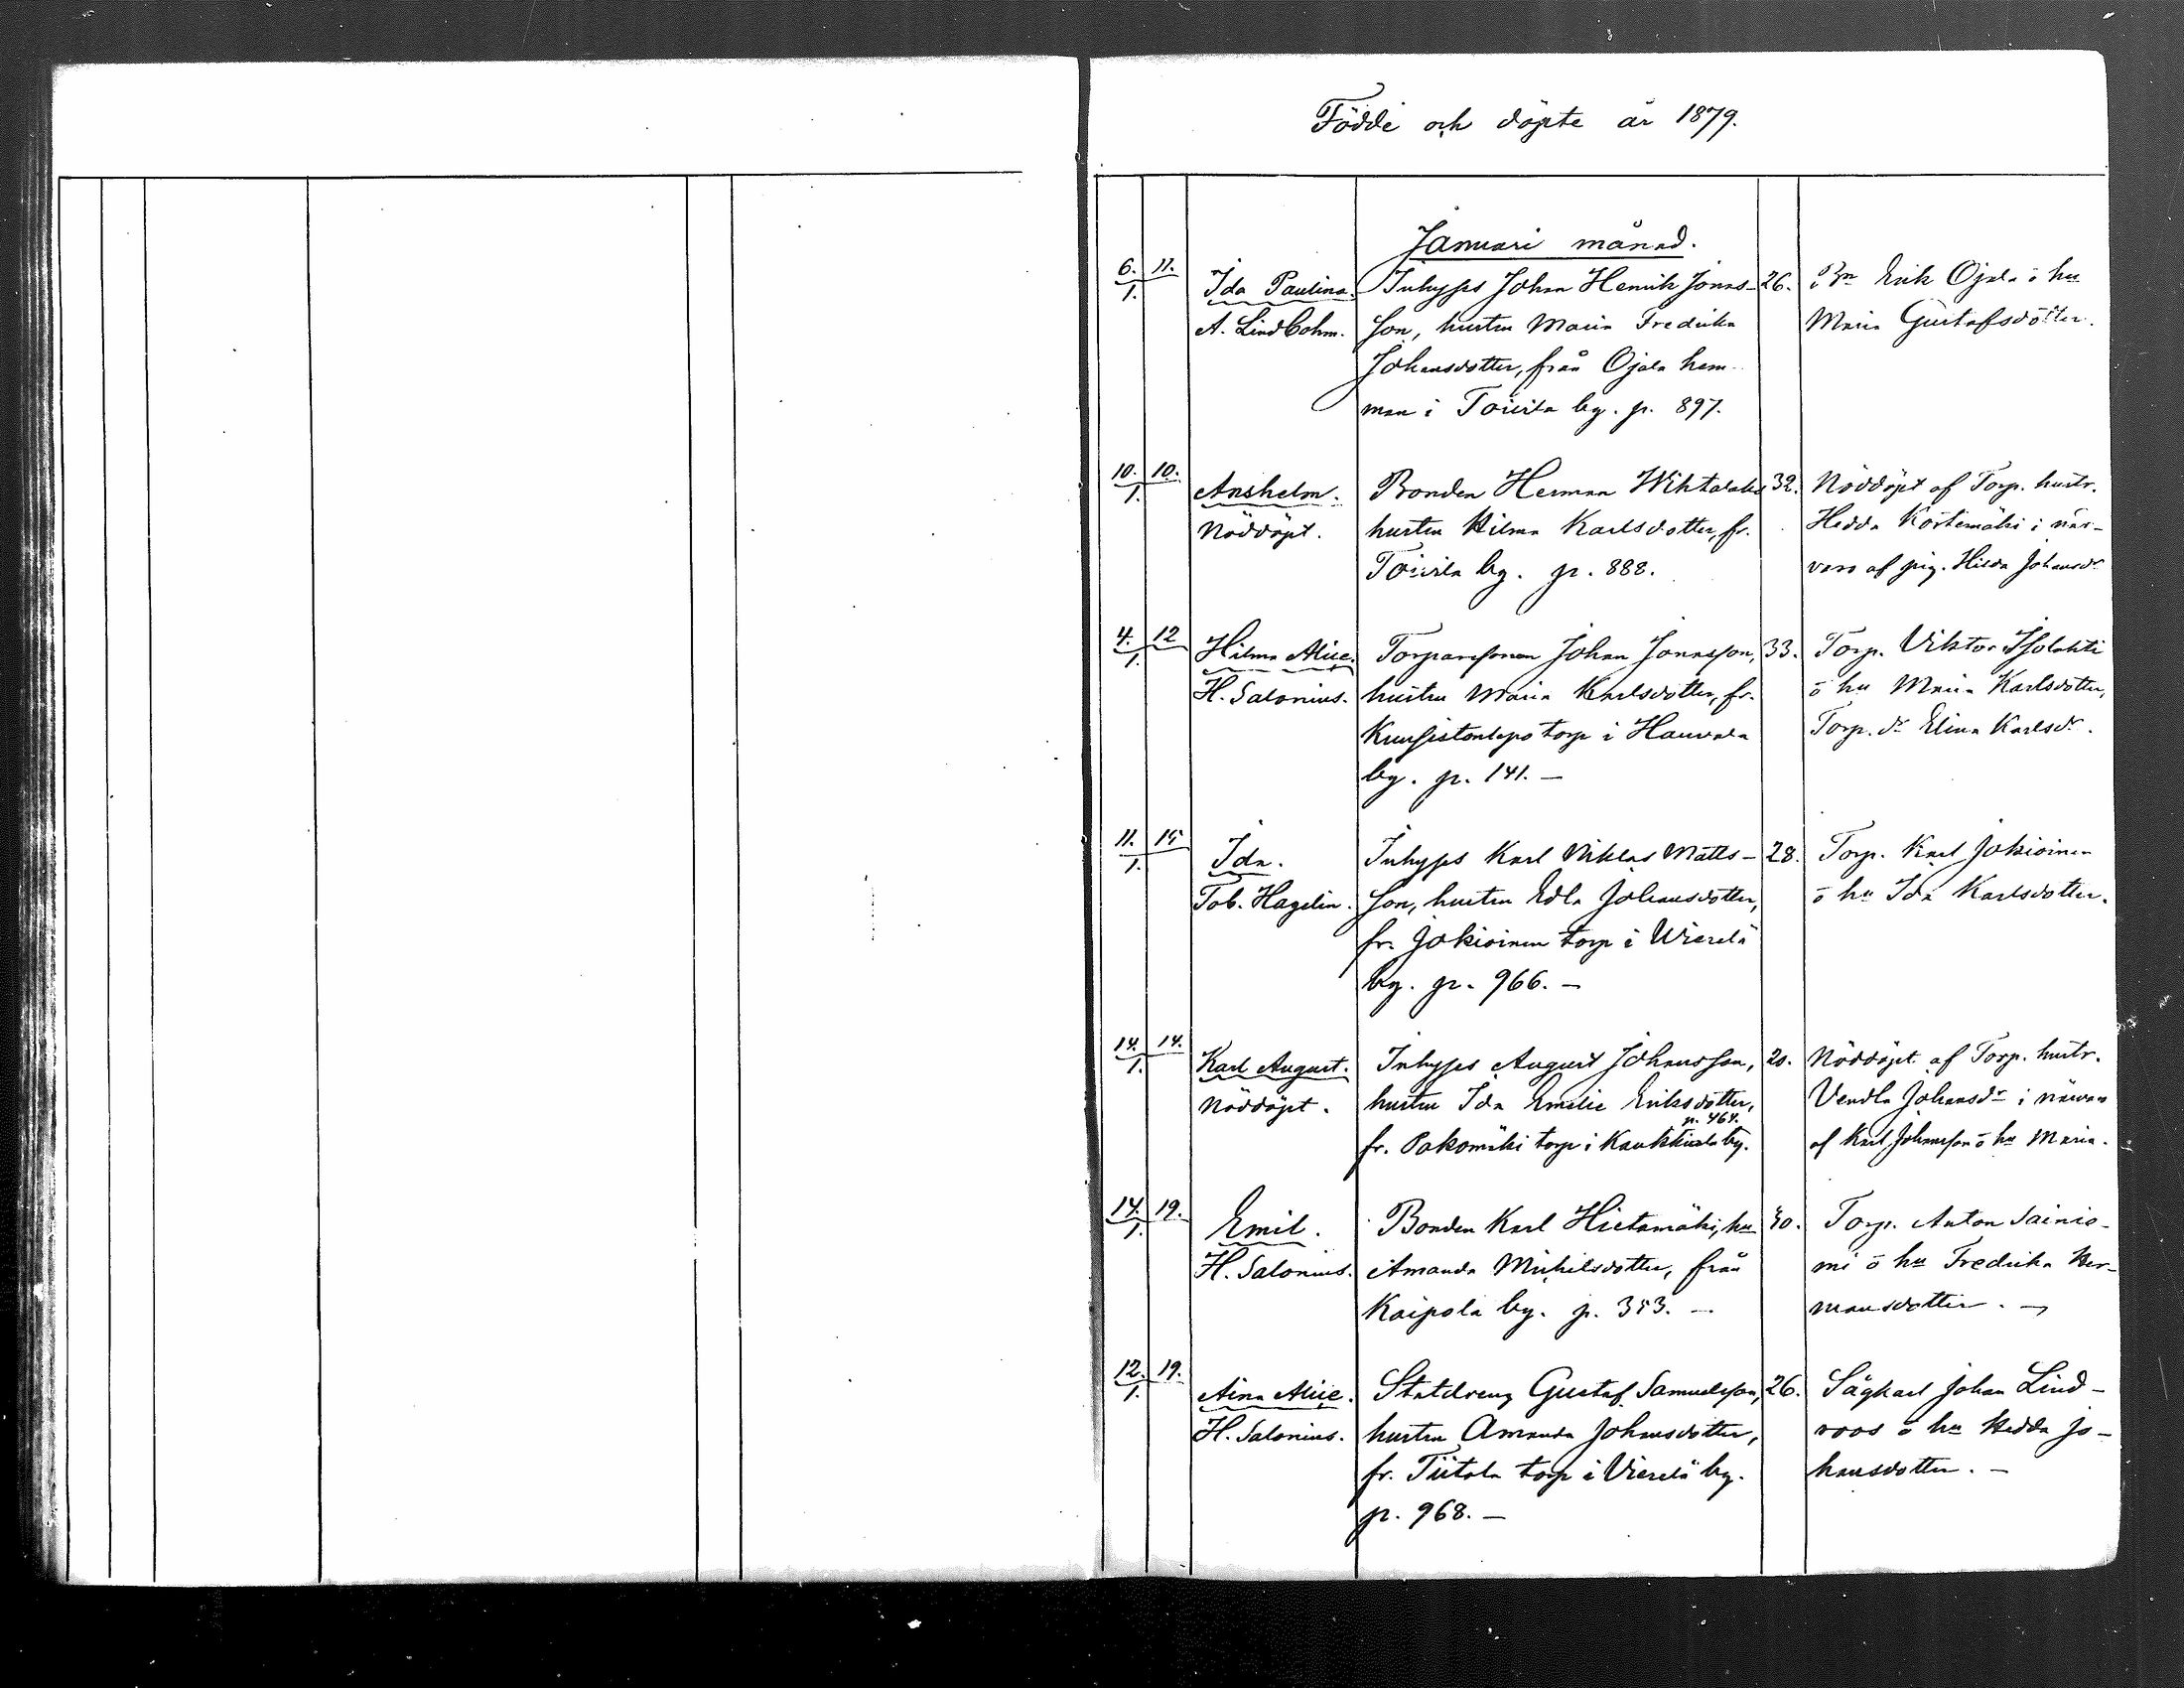 Födde och döpte år 1879.
Januari månad.
6. 11. Ida Paulina. Inhyses Johan Henrik Jonas- 26. Bn Erik Ojala o hu
1. A. Lindbohm. son, hustru Maria Fredrika Maria Gustafsdotter.
Johansdotter, från Ojala hem-
man i Toivila by. p. 897.
10. 10. Anshelm. Bonden Herman 32. Nöddöpt af Torp. hustr.
1. Nöddöpt. hustru Hilma Karlsdotter, fr. Hedda i när-
Toivila by. p. 888. varo af pig. Hilda Johansdr
4. 12 Hilma Alice. Torparesonen Johan Jonasson, 33. Torp. Viktor Isolahti
1. H. Salonius. hustru Maria Karlsdotter, fr. o hu Maria Karlsdotter,
torp i Hauvala Torp. dr Elina Karlsdr.
by. p. 141. —
11. 15 Ida. Inhyses Karl Niklas Matts- 28. Torp. Karl Jokioinen
1. Tob. Hagelin. son, hustru Edla Johansdotter, o hu Ida Karlsdotter.
fr. Jokioinen torp i Wierelä
by. p. 966. —
14. 14. Karl August. Inhyses August Johansson, 20. Nöddöpt af Torp. hustr.
1. Nöddöpt. hustru Ida Emelie Eriksdotter, Vendla Johansdr i närvaro
p. 464.
fr. Pakomäki torp i by. af Karl Johansson o hu Maria.
14. 19. Emil. Bonden Karl Hietamäki, hu 40. Torp. Anton Sainio-
1. H. Salonius. Amanda Mickelsdotter, från mi o hu Fredrika Her-
Kaipola by. p. 353. — mansdotter. —
12. 19. Aina Alice. Statdreng Gustaf Samuelsson, 26. Sågkarl Johan Lind-
1. H. Salonius. hustru Amanda Johansdotter, roos o hu Hedda Jo-
fr. Tiitola torp i Vierelä by. hansdotter. —
p. 968. —